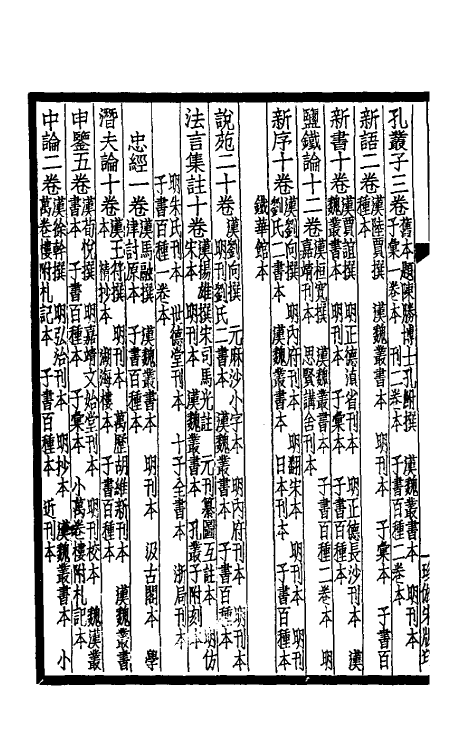 孔叢子三卷 舊本題陳勝博士孔鮒撰 漢魏叢書本 明刊本
子彙 卷本 刊二卷本 子書百種二卷本
新語二卷 漢陸賈撰 漢魏叢書本 明刊本 子彙本 子書百
種本
新書十卷 漢賈誼撰 明正德滇省刊本 明正德長沙刊本 漢
魏叢書本 明刊本 子彙本 子書百種本
鹽鐵論十二卷 漢桓寬撰 漢魏叢書本 子書百種二卷本 明
嘉靖刊本 思賢講舍刊本
新序十卷 漢劉向撰 明內府刊本 明翻宋本 明刊本 明刊
劉氏二書本 漢魏叢書本 日本刊本 子書百種本
鐵華館本
說苑二十卷 漢劉向撰 元麻沙小字本 明內府刊本 明刊本
明刊劉氏二書本 漢魏叢書本 子書百種本
法言集註十卷 漢揚雄撰宋司馬光註 元刊纂圖互註本 明仿
宋本 明刊本 漢魏叢書本 孔叢子附刻本
明朱氏刊本 世德堂刊本 十子全書本 浙局刊本
子書百種一卷本
忠經一卷 漢馬融撰 漢魏叢書本 明刊本 汲古閣本 學
津討原本 子書百種本
潛夫論十卷 漢王符撰 明刊本 萬歷胡維新刊本 漢魏叢書
本 精抄本 湖海樓本 子書百種本
申鑒五卷 漢荀悅撰 明嘉靖文始堂刊本 明刊校本 魏漢叢
書本 子書百種本 子彙本 小萬卷樓附札記本
中論二卷 漢徐幹撰 明弘治刊本 明抄本 漢魏叢書本 小
萬卷樓附札記本 子書百種本 近刊本